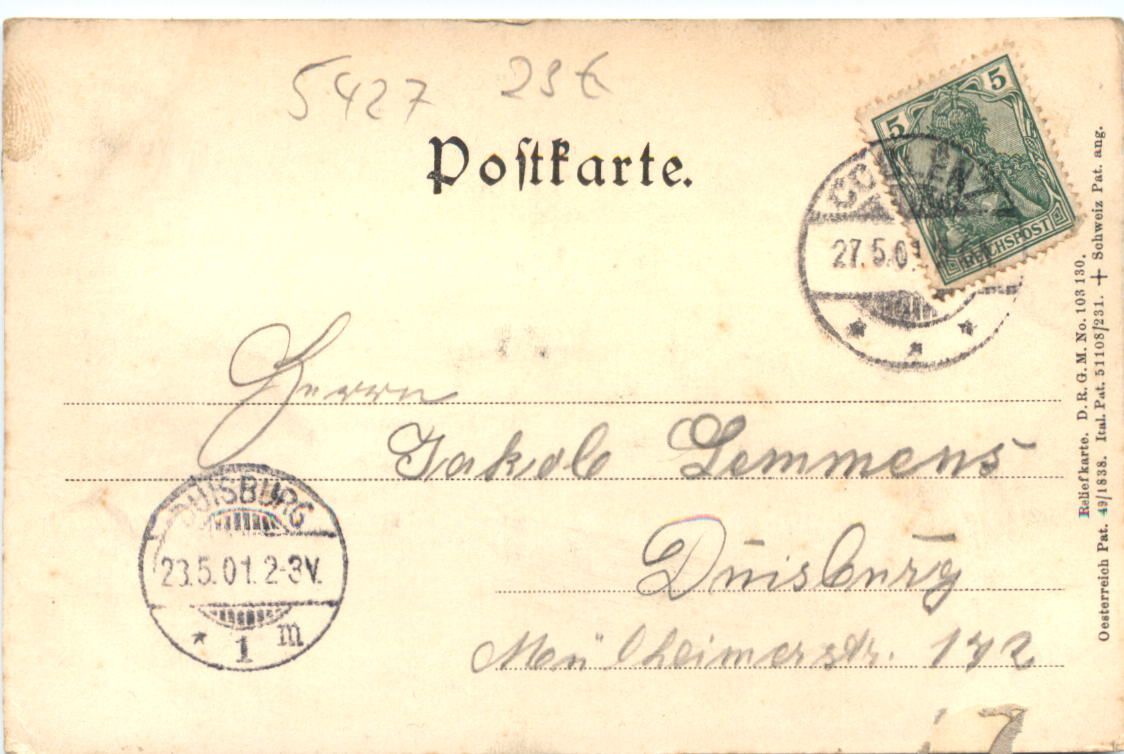 5427 23€
Postkarte.
5 5
REICHSPOST
COBLENZ
27.5.01
Herrn
Jakob Lemmens
Duisburg
Mülheimerstr. 172
DUISBURG
23.5.01.2-3V.
* 1 m
Reliefkarte. D. R. G. M. No. 103 130.
Oesterreich Pat. 49/1838. Ital. Pat. 51108/231. + Schweiz Pat. ang.